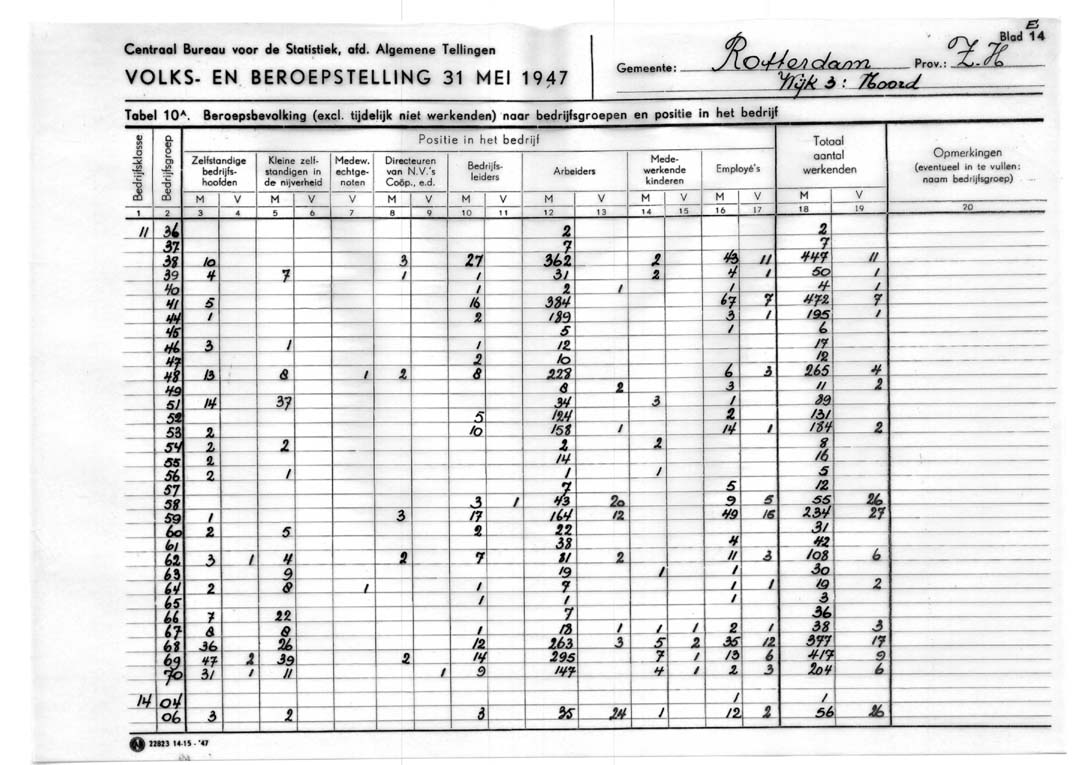 E
Blad 14
Centraal Bureau voor de Statistiek, afd. Algemene Tellingen
VOLKS- EN BEROEPSTELLING 31 MEI 1947
Gemeente: Rotterdam Prov.: Z.H
Wijk 3: Noord
Tabel 10A. Beroepsbevolking (excl. tijdelijk niet werkenden) naar bedrijfsgroepen en positie in het bedrijf
Bedrijfsklasse
Bedrijfsgroep
Positie in het bedrijf
Zelfstandige bedrijfs-hoofden
Kleine zelf-standigen in de nijverheid
Medew. echtge-noten
Directeuren van N.V.'s Coöp., e.d.
Bedrijfs-leiders
Arbeiders
Mede-werkende kinderen
Employé's
Totaal aantal werkenden
Opmerkingen (eventueel in te vullen: naam bedrijfsgroep)
M V M V V M V M V M V M V M V M V
1 2 3 4 5 6 7 8 9 10 11 12 13 14 15 16 17 18 19 20
11 36 2 2
37 7 7
38 10 3 27 362 2 43 11 447 11
39 4 7 1 1 31 2 4 1 50 1
40 1 2 1 1 4 1
41 5 16 384 67 7 472 7
44 1 2 189 3 1 195 1
45 5 1 6
46 3 1 1 12 17
47 2 10 12
48 13 8 1 2 8 228 6 3 265 4
49 8 2 3 11 2
51 14 37 34 3 1 89
52 5 124 2 131
53 2 10 158 1 14 1 184 2
54 2 2 2 2 8
55 2 14 16
56 2 1 1 1 5
57 7 5 12
58 3 1 43 20 9 5 55 26
59 1 3 17 164 12 49 15 234 27
60 2 5 2 22 31
61 38 4 42
62 3 1 4 2 7 81 2 11 3 108 6
63 9 19 1 1 30
64 2 8 1 1 7 1 1 19 2
65 1 1 1 3
66 7 22 7 36
67 8 8 1 18 1 1 1 2 1 38 3
68 36 26 12 263 3 5 2 35 12 377 17
69 47 2 39 2 14 295 7 1 13 6 417 9
70 31 1 11 1 9 147 4 1 2 3 204 6
14 04 1 1
06 3 2 3 35 24 1 12 2 56 26
22823 14-15 - '47